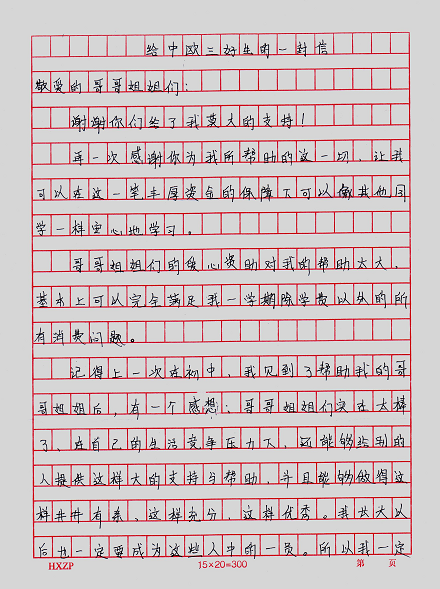 给中欧三好生的一封信
敬爱的哥哥姐姐们:
谢谢你们给了我莫大的支持!
再一次感谢你为我所帮助的这一切,让我
可以在这一笔丰厚资金的保障下可以像其他同
学一样安心地学习。
哥哥姐姐们的爱心资助对我的帮助太大,
基本上可以完全满足我一学期除学费以外的所
有消费问题。
记得上一次在初中,我见到了帮助我的哥
哥姐姐后,有一个感想:哥哥姐姐们实在太棒
了、在自己的生活竞争压力下,还能够给别的
人提供这样大的支持与帮助,并且能够做得这
样井井有条、这样充分,这样优秀。我长大以
后也一定要成为这些人中的一员。所以我一定
HXZP 15×20=300 第 页